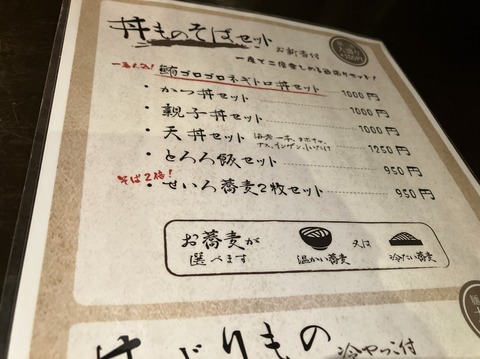 丼ものそばセット お新香付
一度で二度楽しめるお得なセット!
一番人気! 鮪ゴロゴロネギトロ丼セット 1000円
・かつ丼セット 1000円
・親子丼セット 1000円
・天丼セット 海老一本、かぼちゃ、ナス、インゲン、しいたけ 1250円
・とろろ飯セット 950円
そば2倍!
・せいろ蕎麦2枚セット 950円
お蕎麦が
選べます
温かい蕎麦
又は
冷たい蕎麦
冷やっこ付